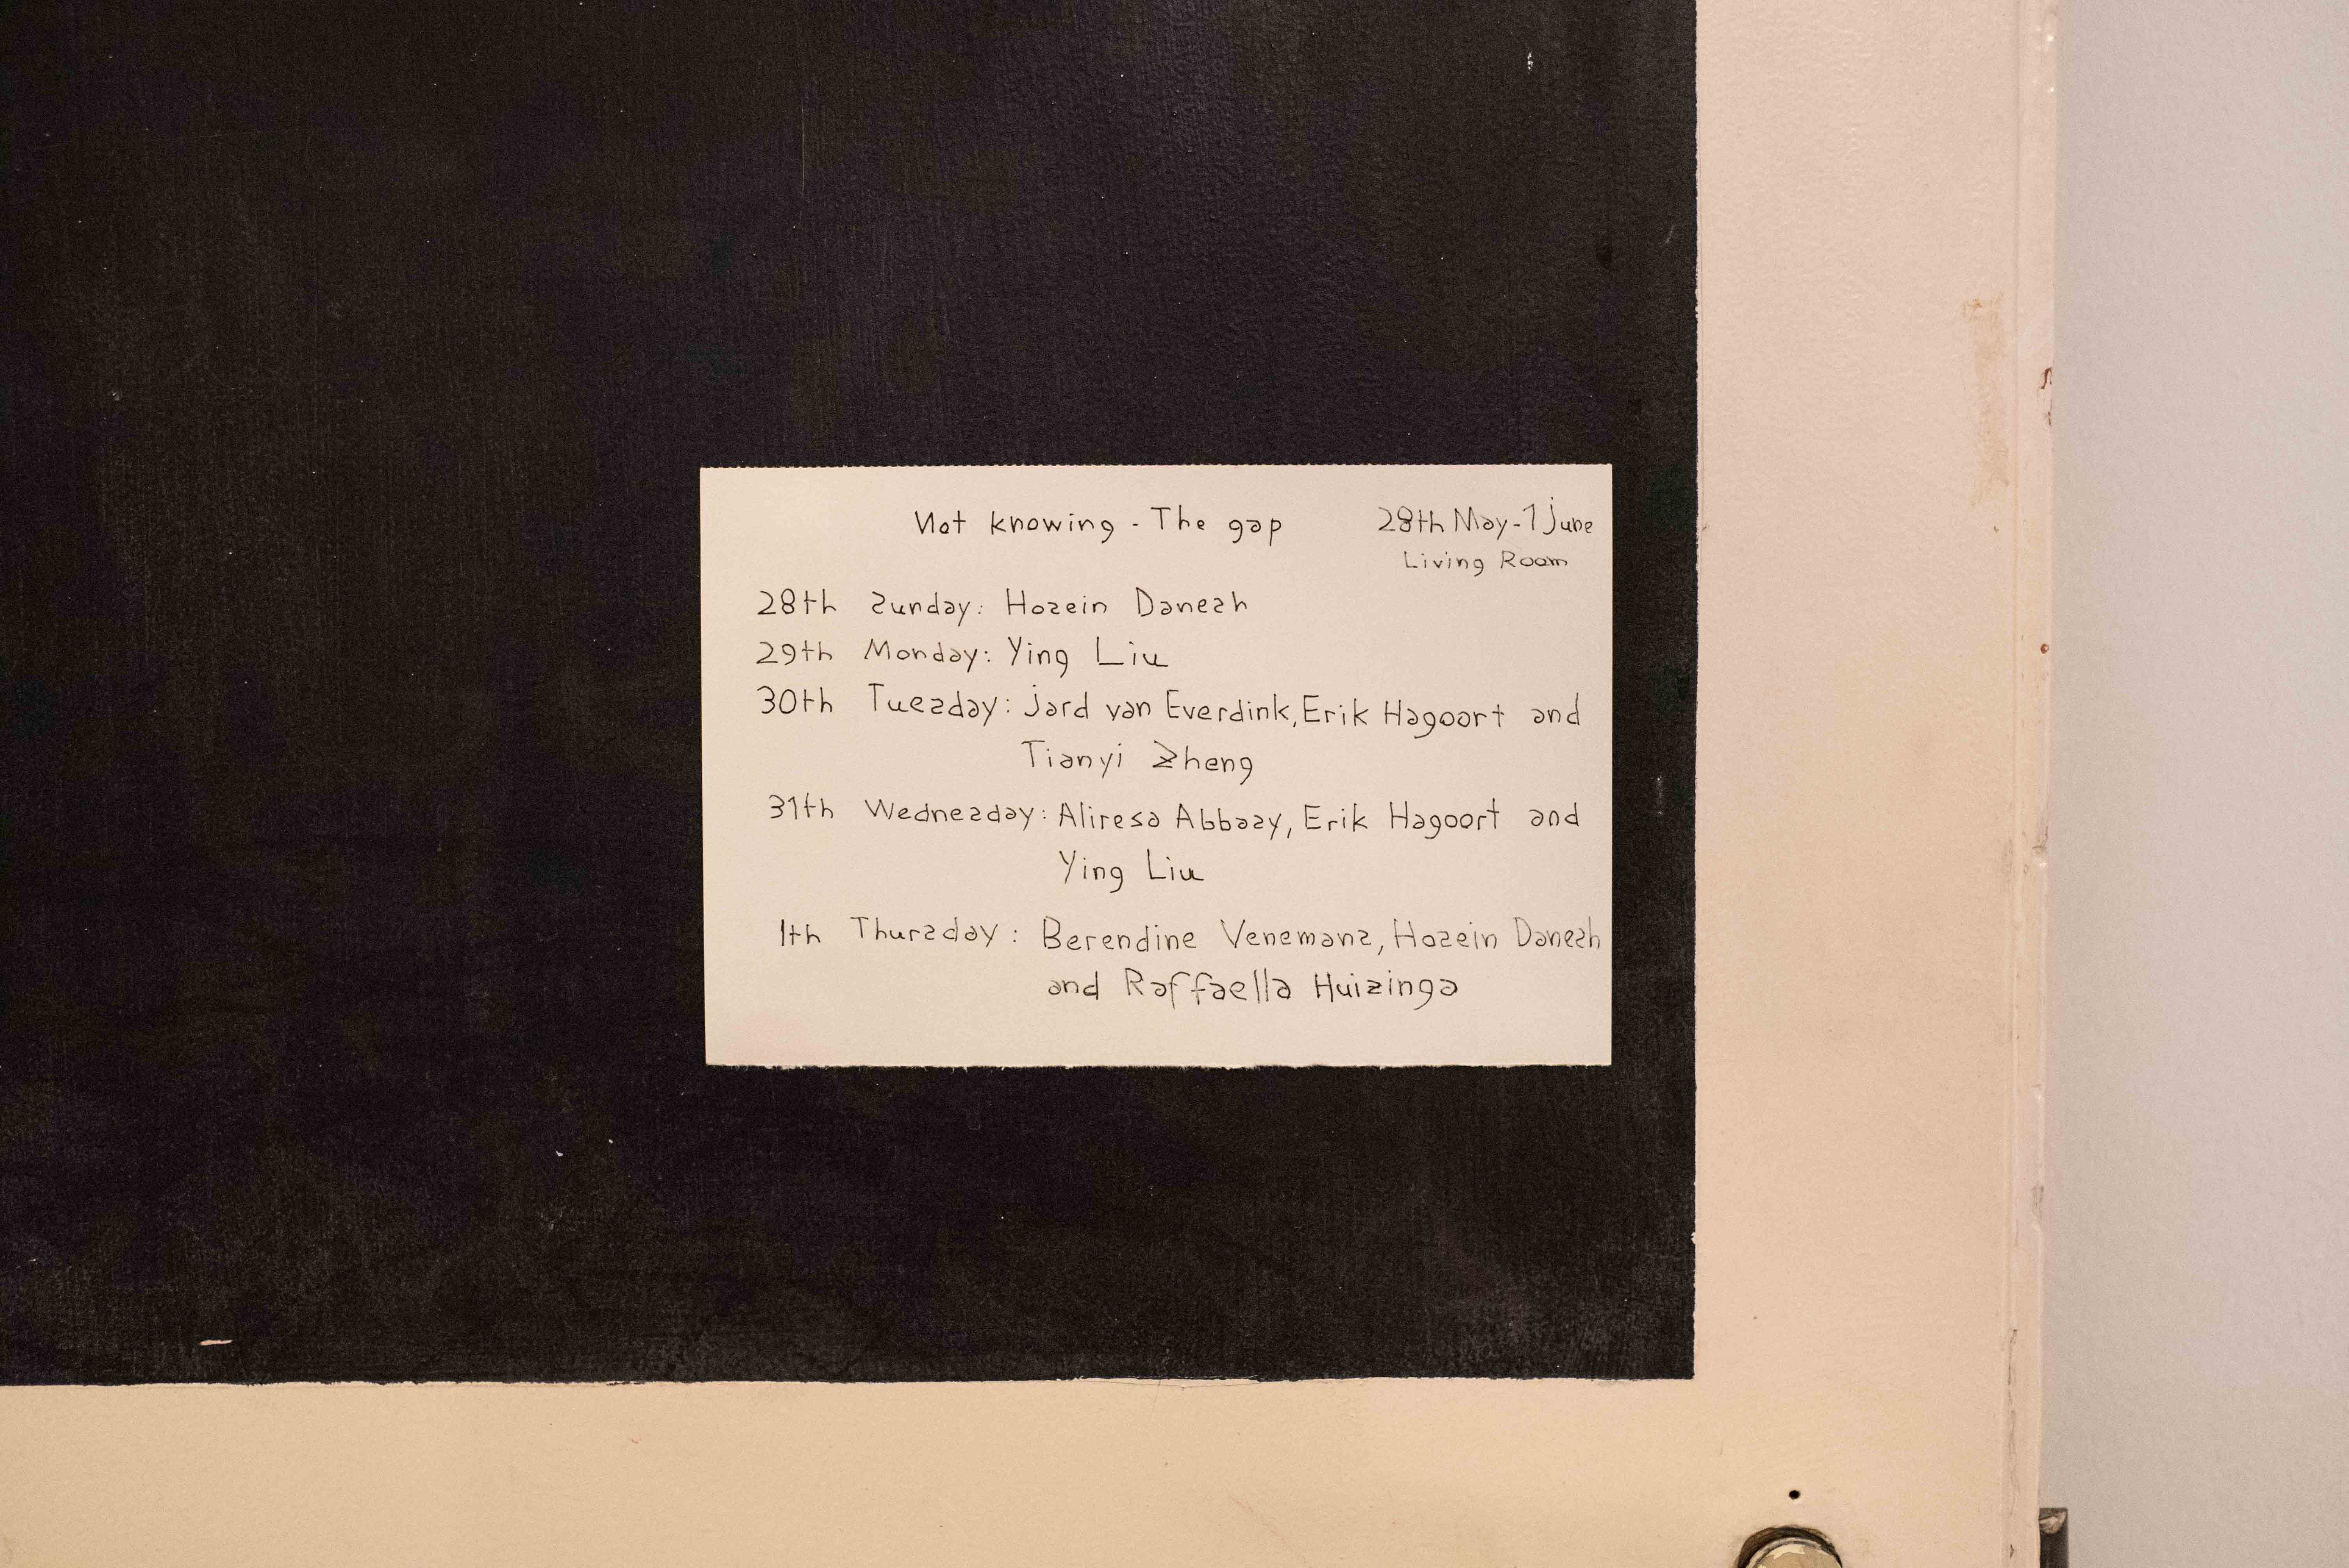 Not knowing - The gap 28th May - 1 June
Living Room
28th Sunday: Hosein Danesh
29th Monday: Ying Liu
30th Tuesday: Jard van Everdink, Erik Hagoort and
Tianyi Zheng
31th Wednesday: Aliresa Abbasy, Erik Hagoort and
Ying Liu
1th Thursday: Berendine Venemans, Hosein Danesh
and Raffaella Huizinga